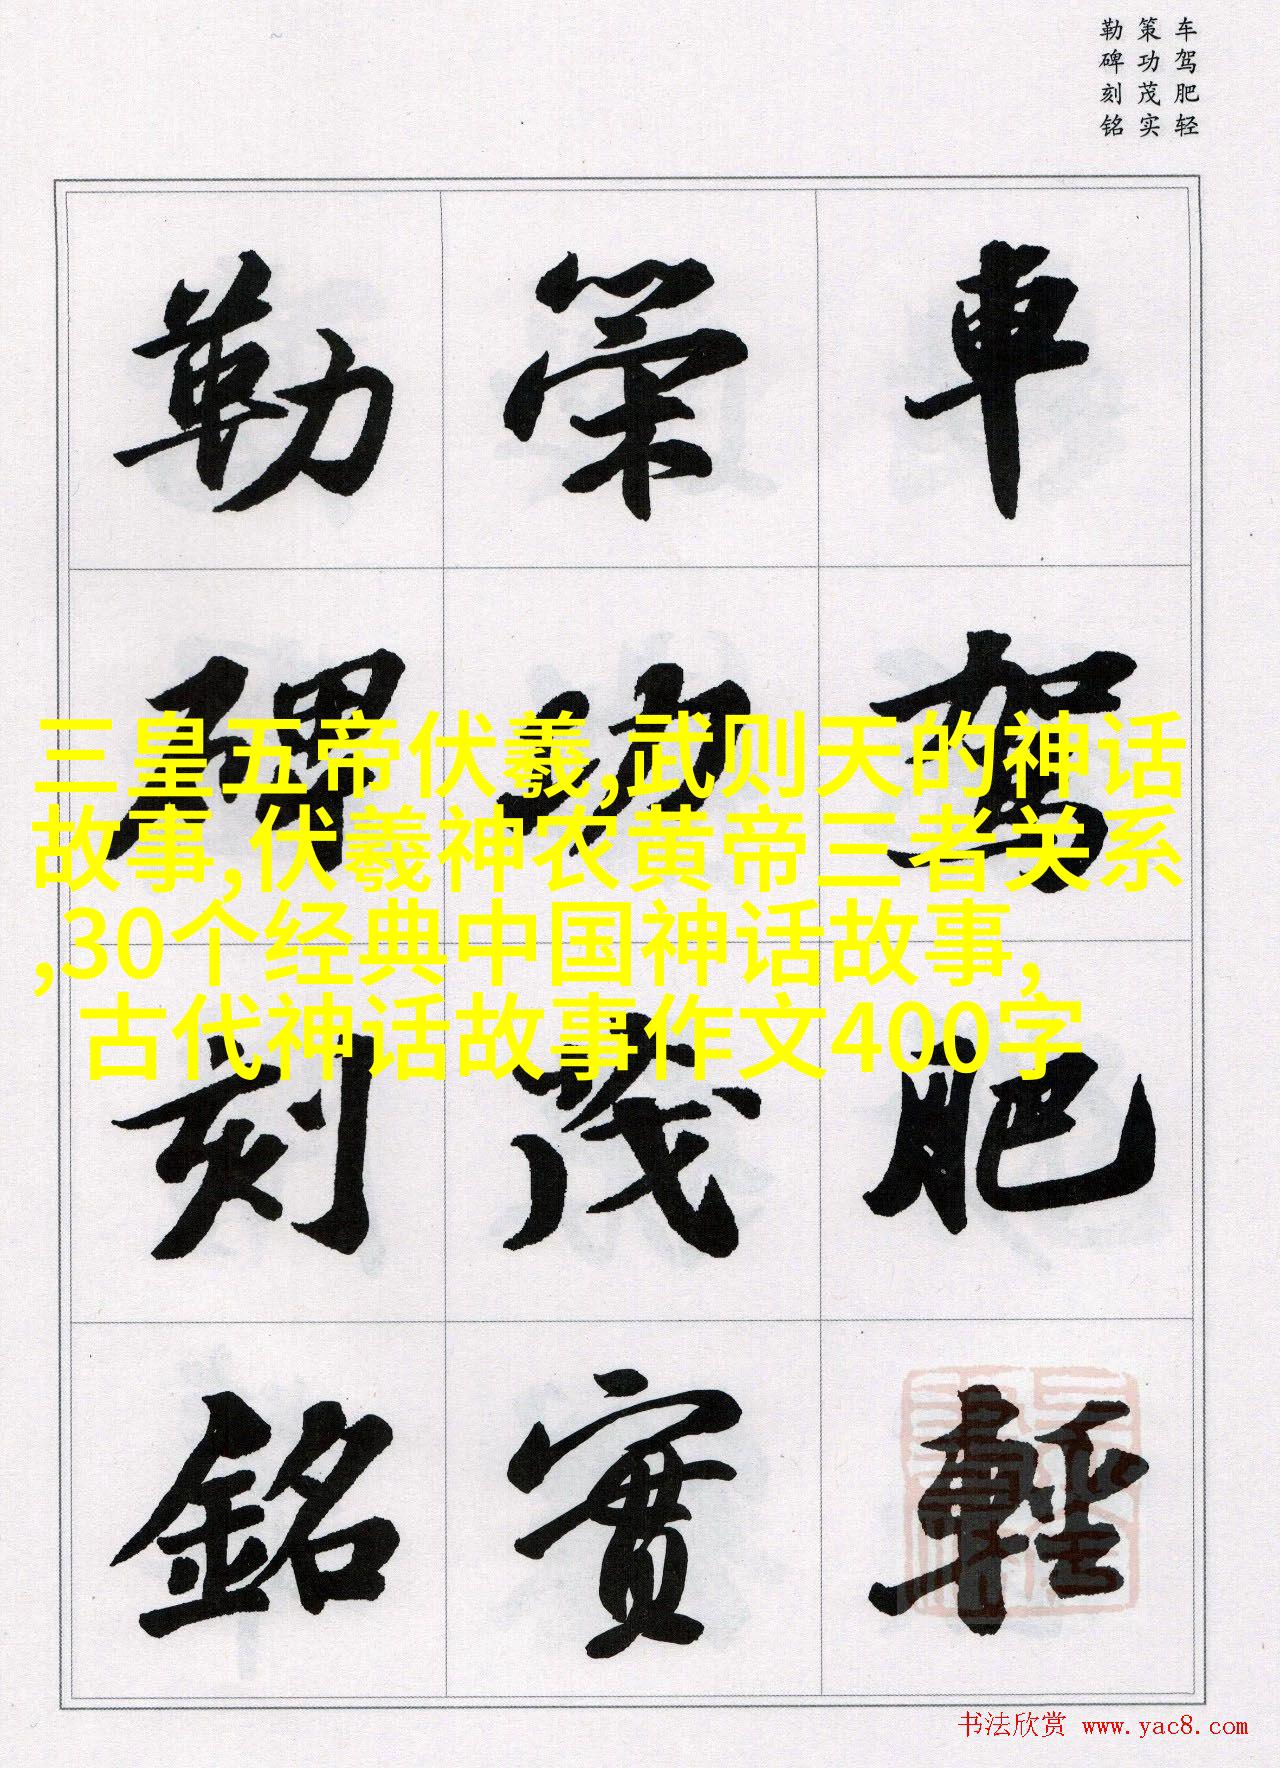 车驾肥轻
策功茂实
勒碑刻铭
車駕肥輕
策功茂實
勒碑刻銘
三皇五帝伏羲,武则天的神话
故事,伏羲神农黄帝三者关系
,30个经典中国神话故事,
古代神话故事作文400字
书法欣赏 www.yac8.com